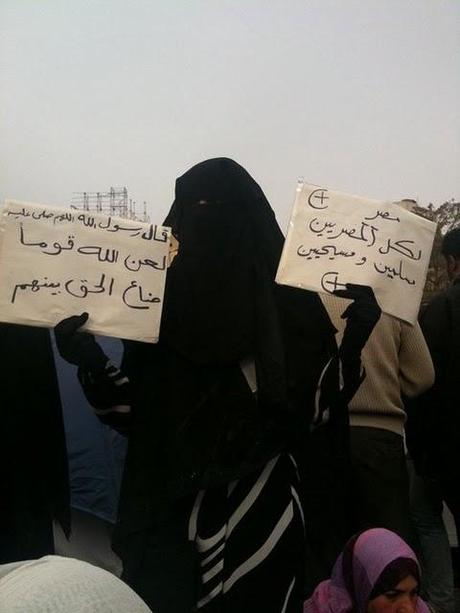 مصر
لكل المصريين
مسلمين ومسيحيين
قال رسول الله اللهم صلى عليه
لعن الله قوماً
ضاع الحق بينهم